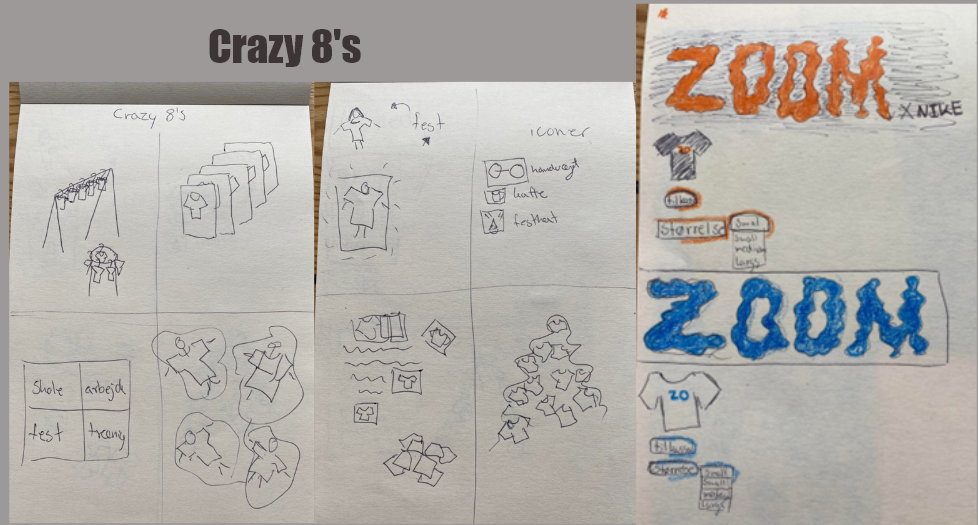 Crazy 8's
Crazy 8's
Skole
arbejde
fest
træning
fest
iconer
handvægt
kaffe
festhat
ZOOM
X NIKE
ZO
Størrelse
Small
Small
medium
Large
ZOOM
ZO
Størrelse
Small
Small
medium
Large